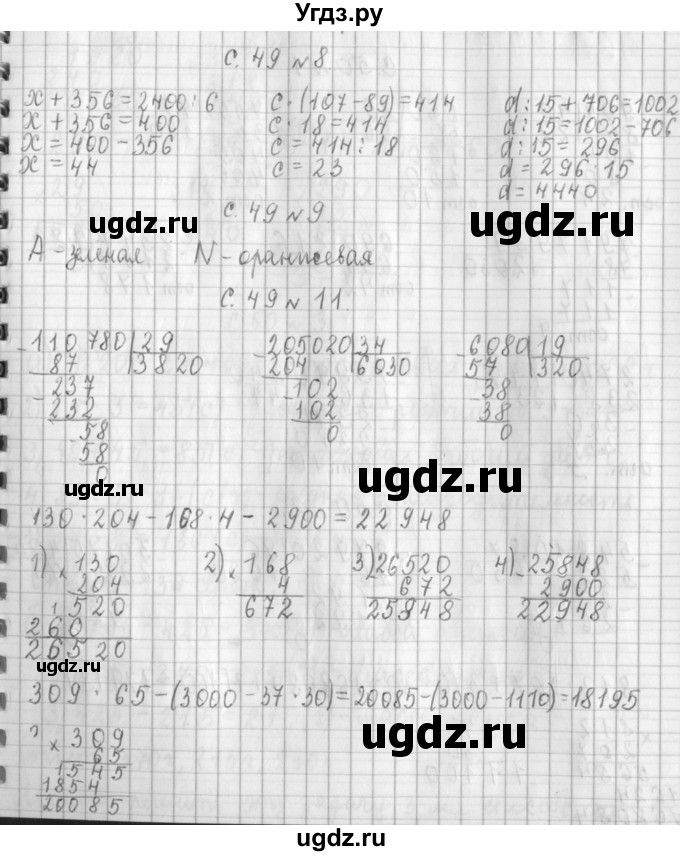 Угдз.ру
с. 49 №8
x + 356 = 2400 : 6
x + 356 = 400
x = 400 - 356
x = 44
c · (107 - 89) = 414
c · 18 = 414
c = 414 : 18
c = 23
d : 15 + 706 = 1002
d : 15 = 1002 - 706
d : 15 = 296
d = 296 · 15
d = 4440
ugdz.ru
ugdz.ru
с. 49 №9.
A - зеленая N - оранжевая
с. 49 № 11.
110 780 | 29
87 | 3820
237
232
58
58
0
205020 | 34
204 | 6030
102
102
0
6080 | 19
57 | 320
38
38
0
ugdz.ru
ugdz.ru
130 · 204 - 168 · 4 - 2900 = 22 948
1) × 130
204
520
260
26520
2) × 168
4
672
3) - 26520
672
25848
4) - 25848
2900
22948
ugdz.ru
309 · 65 - (3000 - 37 · 30) = 20085 - (3000 - 1110) = 18195
ugdz.ru
× 309
65
1545
1854
20085
ugdz.ru